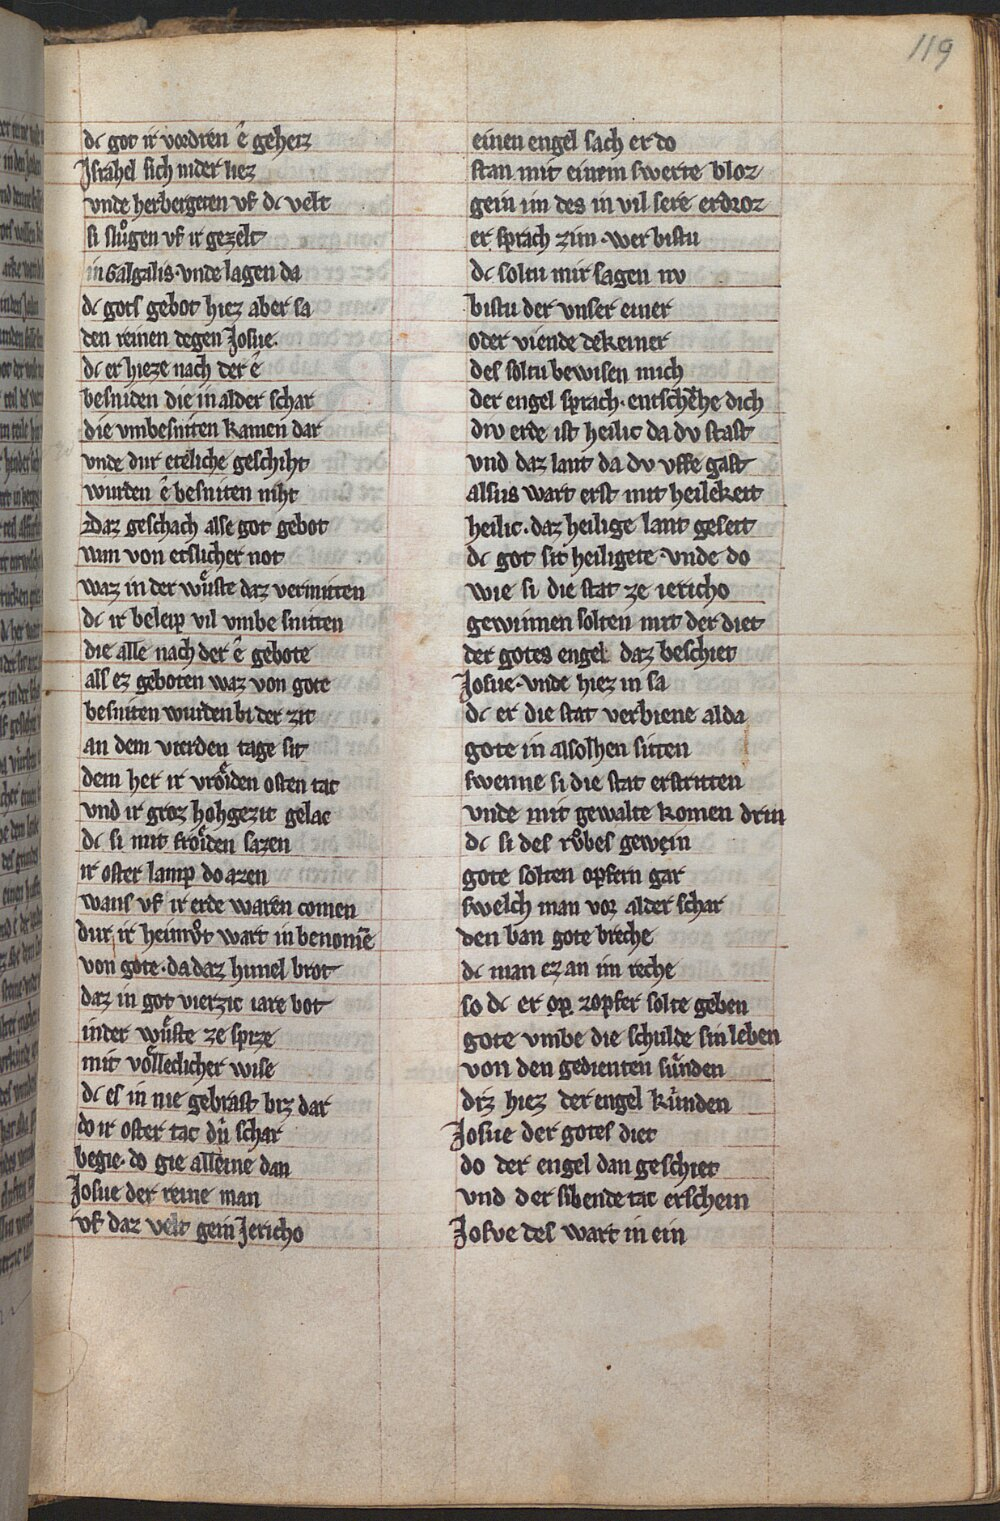 119
dc got ir vordren ê geheiz
Israhel sich nider liez
vnde herbergeten vf dc velt
si slůgen vf ir gezelt
in Galgalis· vnde lagen da
dc gots gebot hiez aber sa
den reinen degen Josue·
dc er hieze nach der ê
besniden die in alder schar
die vmbesniten kamen dar
vnde dur eteliche geschiht
wurden ê besniten niht
Daz geschach alse got gebot
wan von etslicher not
waz in der wůste daz vermitten
dc ir beleip vil vmbe snitten
die alle nach der ê gebote
als ez geboten waz von gote
besniten wurden bi der zit
an dem vierden tage sit
dem her ir vrőiden osten tac
vnd ir groz hohgezit gelac
dc si mit frőiden sazen
ir oster lamp do azen
wans vf ir erde waren comen
dur ir heimůt wart in benomē
von gote· da daz himel brot
daz in got vierzic iare bot
in der wůste ze spize
mit vőlleclicher wise
dc es in nie gebrast biz dar
do ir oster tac dů schar
begie· do gie alleine dan
Josue der reine man
vf daz velt gein Jericho
einen engel sach er do
stan mit einem swerte bloz
gein im des in vil sere erdroz
er sprach zim· wer bistu
dc soltu mir sagen nv
bistu der vnser einer
oder viende dekeiner
des soltu bewisen mich
der engel sprach· entschůhe dich
div erde ist heilic da dv stast
vnd daz lant da dv vffe gast
alsus wart erst mit heilekeit
heilic· daz heilige lant geseit
dc got sit heiligete· vnde do
wie si die stat ze iericho
gewinnen solten mit der diet
der gotes engel daz beschiet
Josue· vnde hiez in sa
dc er die stat verbiene alda
gote in alsolhen sitten
swenne si die stat erstritten
vnde mit gewalte komen drin
dc si des rőbes gewein
gote solten opfern gar
swelch man vor alder schar
den ban gote breche
dc man ez an im reche
so dc er op zopfer solte geben
gote vmbe die schulde sin leben
von den gedienten sůnden
diz hiez der engel kůnden
Josue der gotes diet
do der engel dan geschiet
vnd der sibende tac erschein
Josve des wart in ein